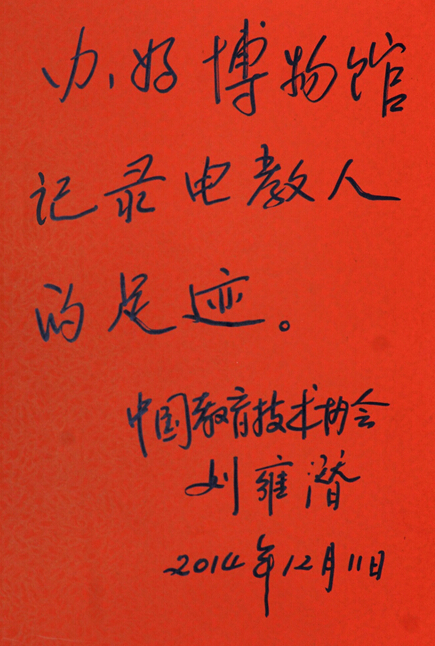 办好博物馆
记录电教人
的足迹。
中国教育技术协会
刘雍潜
2014年12月11日